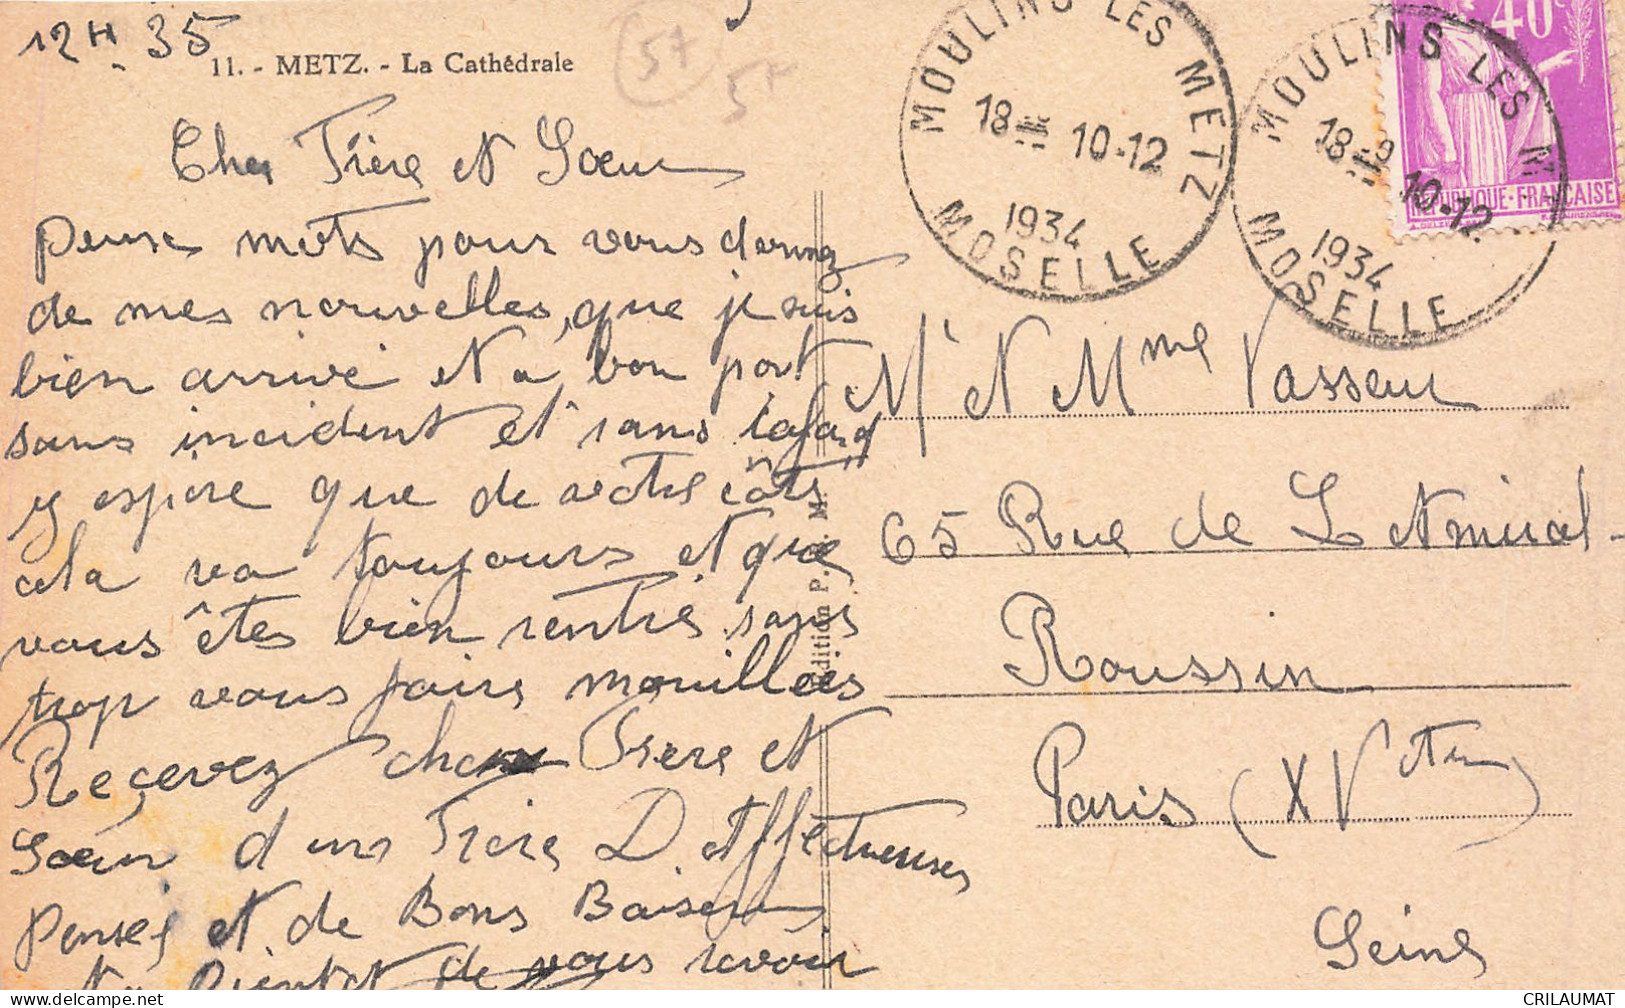 12H 35
11. - METZ. - La Cathédrale
57
57
Cher Frère et Sœur
mots pour vous donnez
de mes nouvelles, que je suis
bien arrivé et a bon port
sans incident et sans cafard
y espère que de votre côté
cela va toujours et que
vous êtes bien rentré sans
trop vous faire mouillées
Reçevez cher Frère et
Sœur d'un Frère D. affectueuses
Pensés et de Bons Baisers
Bientot de vous revoir
Edition P. M.
MOULINS LES METZ
18 10-12
1934
MOSELLE
MOULINS LES M
18 10-12
1934
MOSELLE
40c
REPUBLIQUE·FRANÇAISE
Mr et Mme Vasseur
65 Rue de L'Amiral-
Roussin
Paris (XV
Seine
CRILAUMAT